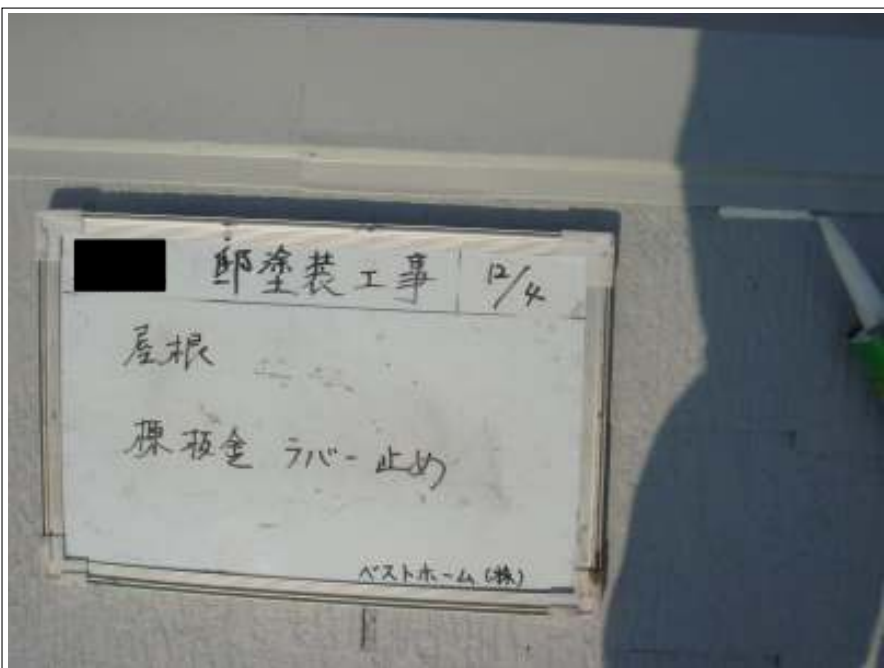 邸塗装工事 12/4
屋根
棟板金 ラバー止め
ベストホーム(株)